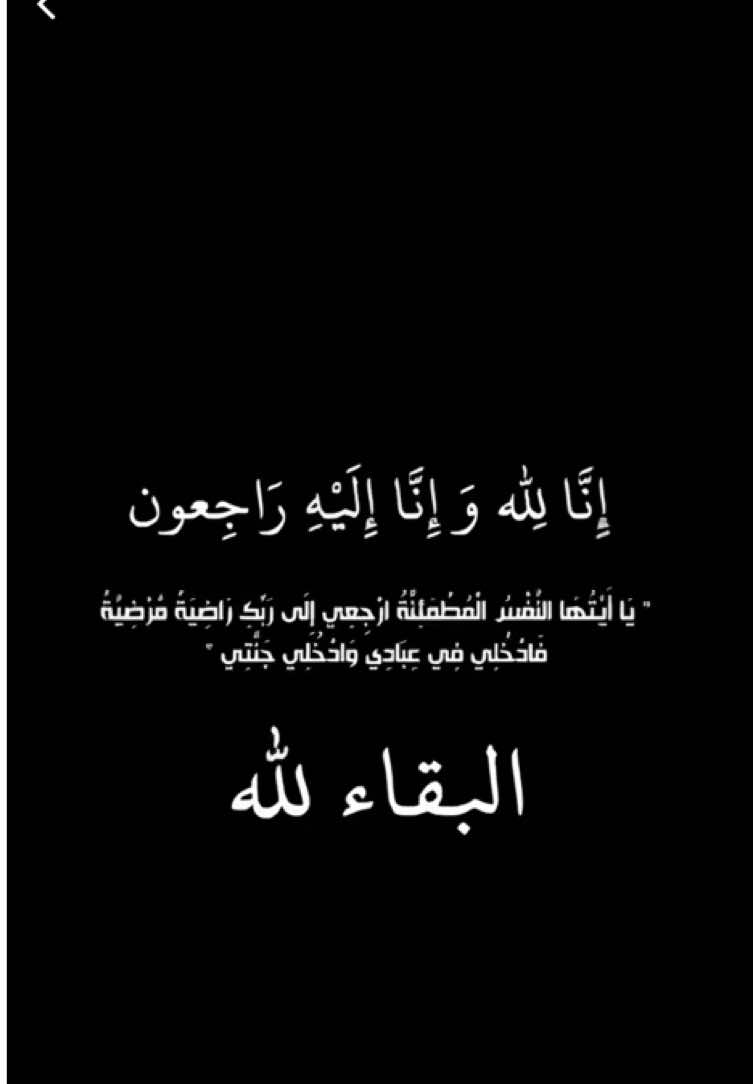 إِنَّا لِلّٰه وَ إِنَّا إِلَيْهِ رَاجِعون
" يَا أَيَّتُهَا النَّفْسُ الْمُطْمَئِنَّةُ ارْجِعِي إِلَى رَبِّكِ رَاضِيَةً مَّرْضِيَّةً
فَادْخُلِي فِي عِبَادِي وَادْخُلِي جَنَّتِي "
البقاء لله